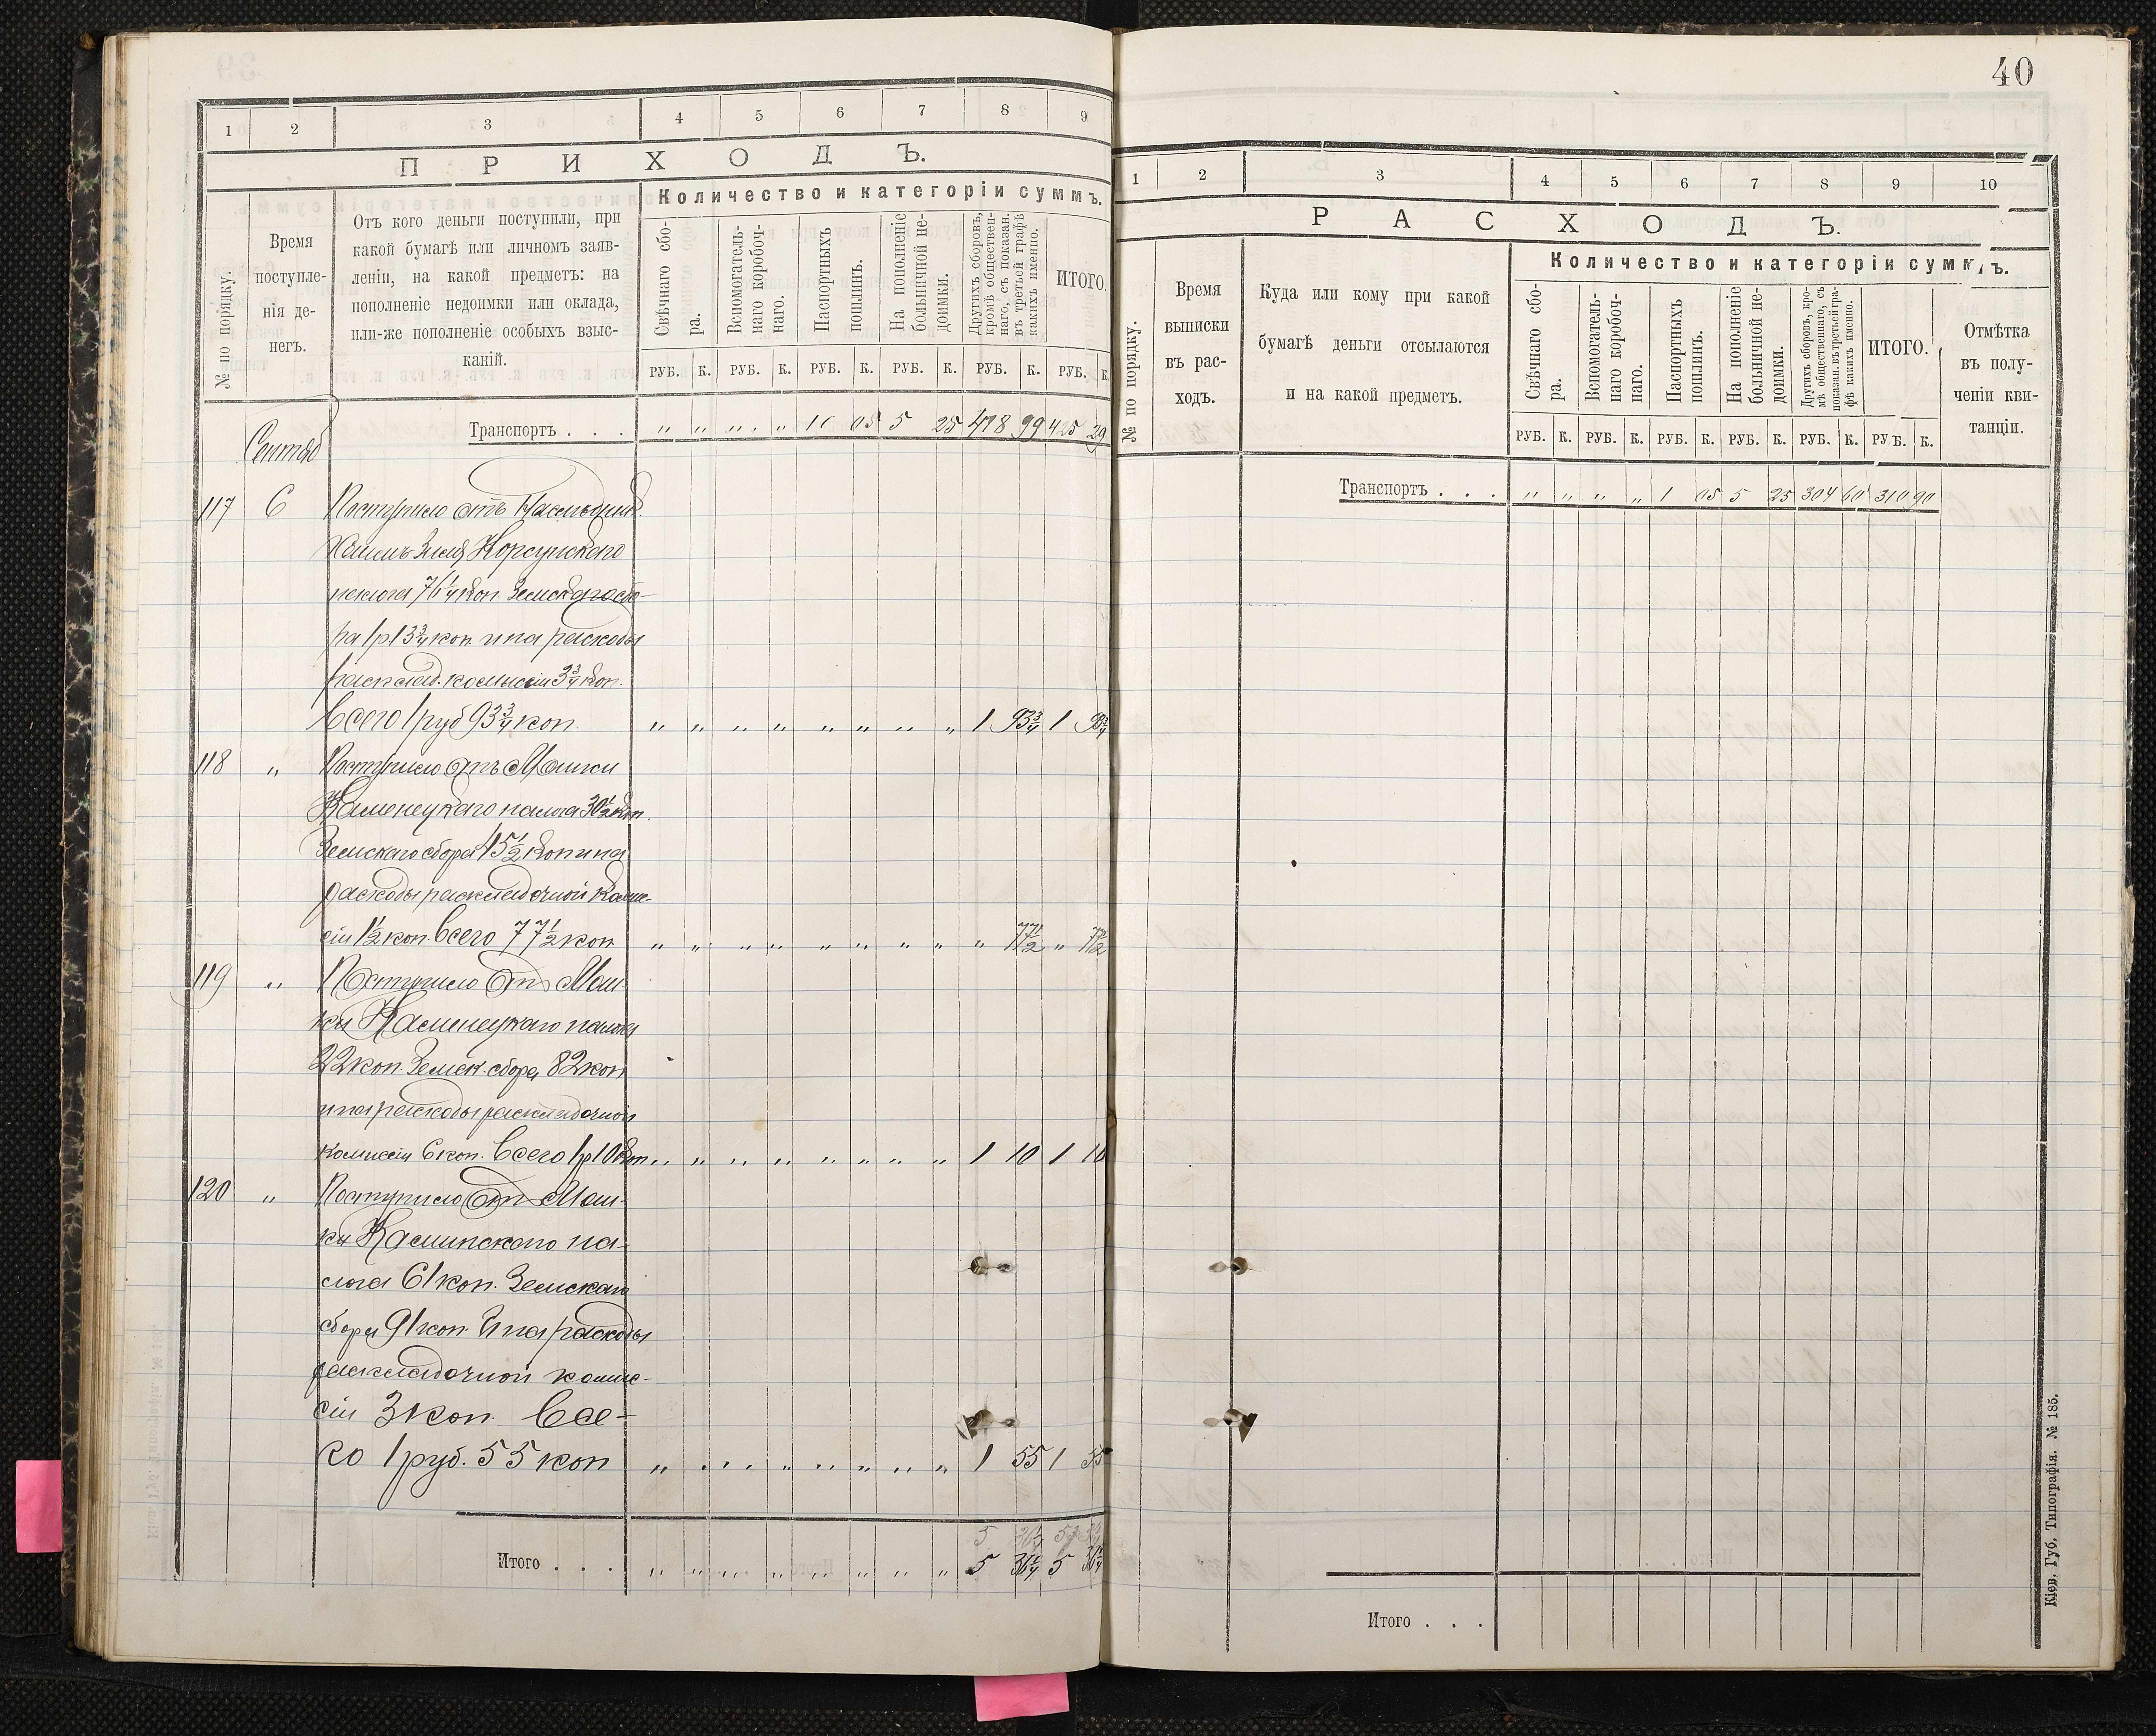 1 2 3 4 5 6 7 8 9
ПРИХОДЪ.
№ по порядку.
Время
поступле-
нія де-
негъ.
Отъ кого деньги поступили, при
какой бумагѣ или личномъ заяв-
леніи, на какой предметъ: на
пополненіе недоимки или оклада,
или-же пополненіе особыхъ взыс-
каній.
Количество и категоріи суммъ.
Свѣчнаго сбо-
ра.
Вспомогатель-
наго коробоч-
наго.
Паспортныхъ
пошлинъ.
На пополненіе
больничной не-
доимки.
Другихъ сборовъ,
кромѣ обществен-
наго, съ показан.
въ третьей графѣ
какихъ именно.
ИТОГО.
РУБ. К. РУБ. К. РУБ. К. РУБ. К. РУБ. К. РУБ. К.
Сентяб
Транспортъ . . . „ „ „ „ 1 05 5 25 99 29
117 6 Поступило отъ
Корсунскаго
налога 76¼ коп. Земскаго сбо-
ра 1 р 13¾ коп и на расходы
расклад. комыссіи 3¾ коп.
Всего 1 руб 93¾ коп. „ „ „ „ „ „ „ „ 1 93¾ 1 93¾
118 „ Поступило отъ Мошки
Каменецкаго налога 30½ коп.
Земскаго сбора 45½ коп и на
расходы раскладочной коми-
сіи 1½ коп. Всего 77½ коп „ „ „ „ „ „ „ „ „ 77½ „ 77½
119 „ Поступило отъ Мош-
ки Каменецкаго налога
22 коп Земск. сбора 82 коп
и на расходы раскладочной
комиссіи 6 коп. Всего 1 р 10 коп „ „ „ „ „ „ „ „ 1 10 1 10
120 „ Поступило отъ Мош-
ки Каминскаго на-
лога 61 коп. Земскаго
сбора 91 коп. И на расходы
раскладочной коми-
сіи 3 коп. Все-
го 1 руб. 55 коп „ „ „ „ „ „ „ „ 1 55 1 55
5 36¼ 5 36¼
Итого . . . „ „ „ „ „ „ „ „ 5 36¼ 5 36¼
40
1 2 3 4 5 6 7 8 9 10
РАСХОДЪ.
№ по порядку.
Время
выписки
въ рас-
ходъ.
Куда или кому при какой
бумагѣ деньги отсылаются
и на какой предметъ.
Количество и категоріи суммъ.
Свѣчнаго сбо-
ра.
Вспомогатель-
наго коробоч-
наго.
Паспортныхъ
пошлинъ.
На пополненіе
больничной не-
доимки.
Другихъ сборовъ, кро-
мѣ общественнаго, съ
показан. въ третьей гра-
фѣ какихъ именно.
ИТОГО.
Отмѣтка
въ полу-
ченіи кви-
танціи.
РУБ. К. РУБ. К. РУБ. К. РУБ. К. РУБ. К. РУБ. К.
Транспортъ . . . „ „ „ „ 1 05 5 25 304 60 310 90
Итого . . .
Кіев. Губ. Типографія. № 185.